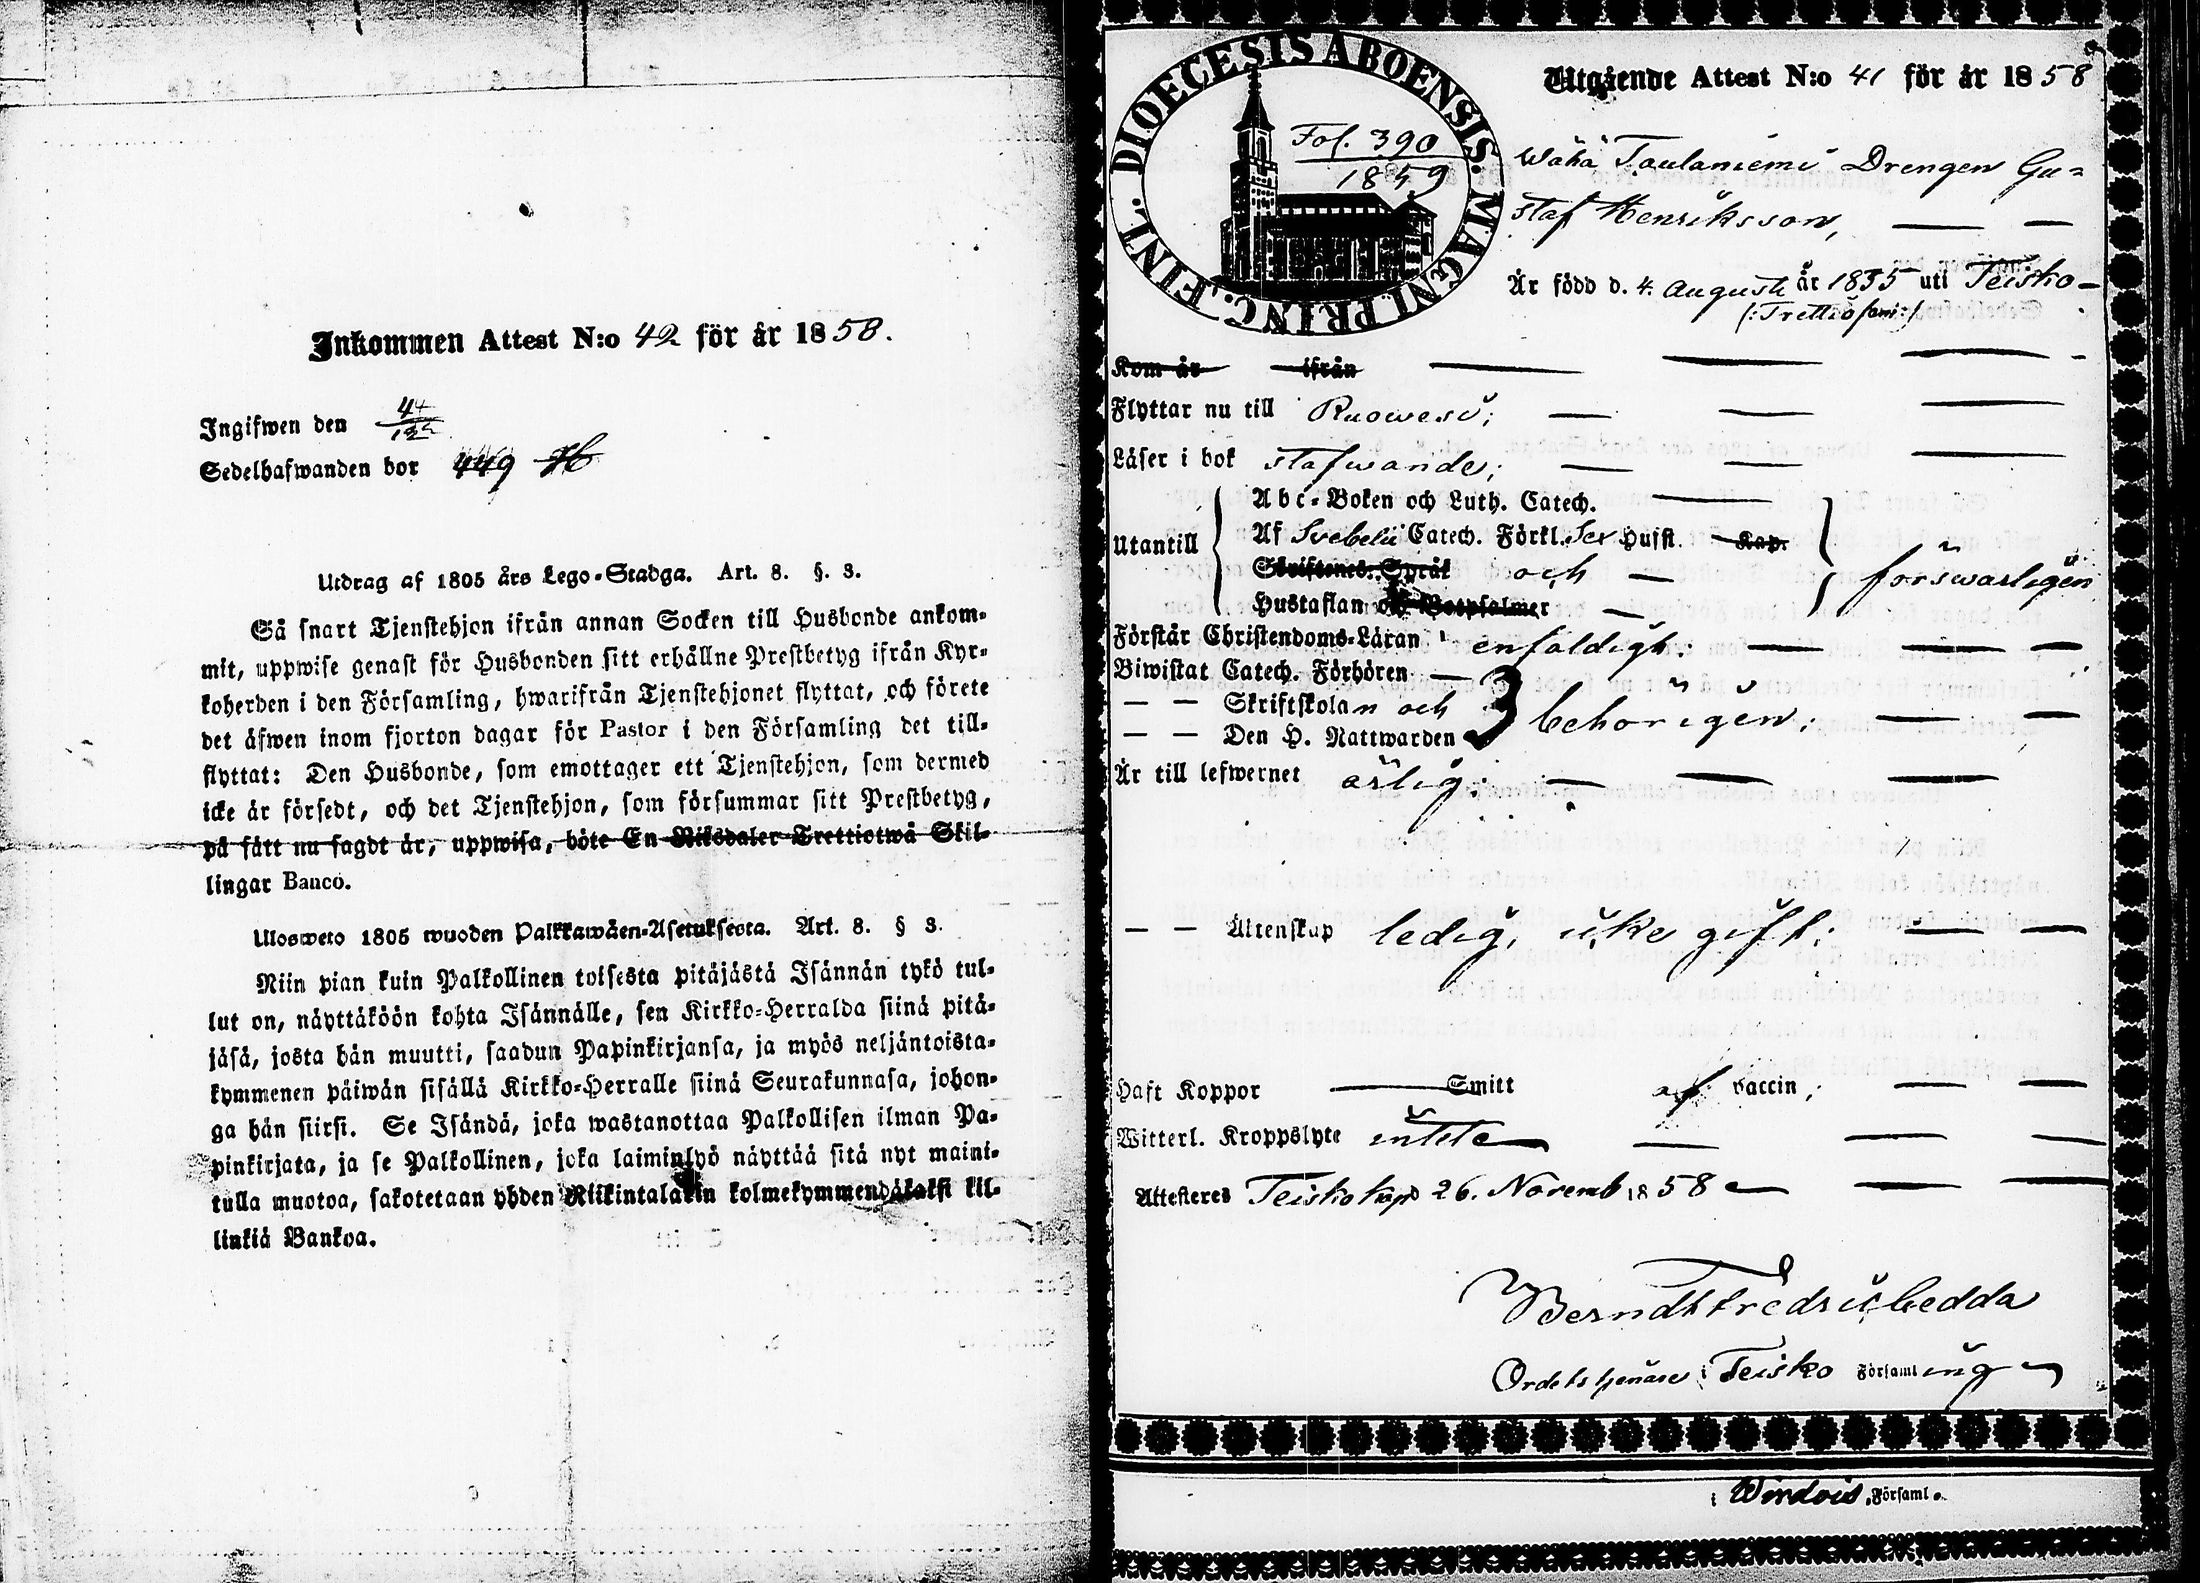 Inkommen Attest N:o 42 för år 1858.
Ingifwen den
Sedelhafwanden bor 449
Utdrag af 1805 års Lego-Stadga. Art. 8. §. 3.
Så snart Tjenstehjon ifrån annan Socken till Husbonde ankom-
mit, uppwise genast för Husbonden sitt erhållne Prestbetyg ifrån Kyr-
koherden i den Församling, hwarifrån Tjenstehjonet flyttat, och förete
det äfwen inom fjorton dagar för Pastor i den Församling det till-
flyttat: Den Husbonde, som emottager ett Tjenstehjon, som dermed
icke är försedt, och det Tjenstehjon, som försummar sitt Prestbetyg,
på sätt nu sagdt är, uppwisa, böte En Riksdaler Trettiotwå Skil-
lingar Banco.
Ulosweto 1805 wuoden Palkkawäen-Asetuksesta. Art. 8. § 3.
Niin pian kuin Palkollinen toisesta pitäjästä Isännän tykö tul-
lut on, näyttäköön kohta Isännälle, sen Kirkko-Herralda siinä pitä-
jäsä, josta hän muutti, saadun Papinkirjansa, ja myös neljäntoista-
kymmenen päiwän sisällä Kirkko-Herralle siinä Seurakunnasa, johon-
ga hän siirsi. Se Isändä, joka wastanottaa Palkollisen ilman Pa-
pinkirjata, ja se Palkollinen, joka laiminlyö näyttää sitä nyt maini-
tulla muotoa, sakotetaan yhden Riikintalarin kolmekymmendäkaksi kil-
linkiä Bankoa.
DIOECESIS ABOENSIS. MAGNI PRINC. FINL.
Fol. 390
1859
Utgående Attest N:o 41 för år 1858
Wähä Taulaniemi Drengen Gu-
staf Henriksson,
Är född d. 4. Augusti år 1835 uti Teisko
Kom år ifrån
Flyttar nu till Ruowesi;
Läser i bok stafwande;
Utantill
Abc-Boken och Luth. Catech.
Af Svebelii Catech. Förkl. Sex Hufst. Kap.
Skriftenes Språk och
Hustaflan och Botpsalmer
förswarligen
Förstår Christendoms-Läran enfaldigt:
Biwistat Catech. Förhören
— — Skriftskolan och
— — Den H. Nattwarden
behörigen;
Är till lefwernet ärlig:
— — Äktenskap ledig, icke gift;
Haft Koppor Smitt af vaccin;
Witterl. Kroppslyte intet
Attesteres Teisko kap 26. Novemb 1858
Berndt Fredric Cedda
Ordets tjenare i Teisko Församling
i Wirdois Församl.